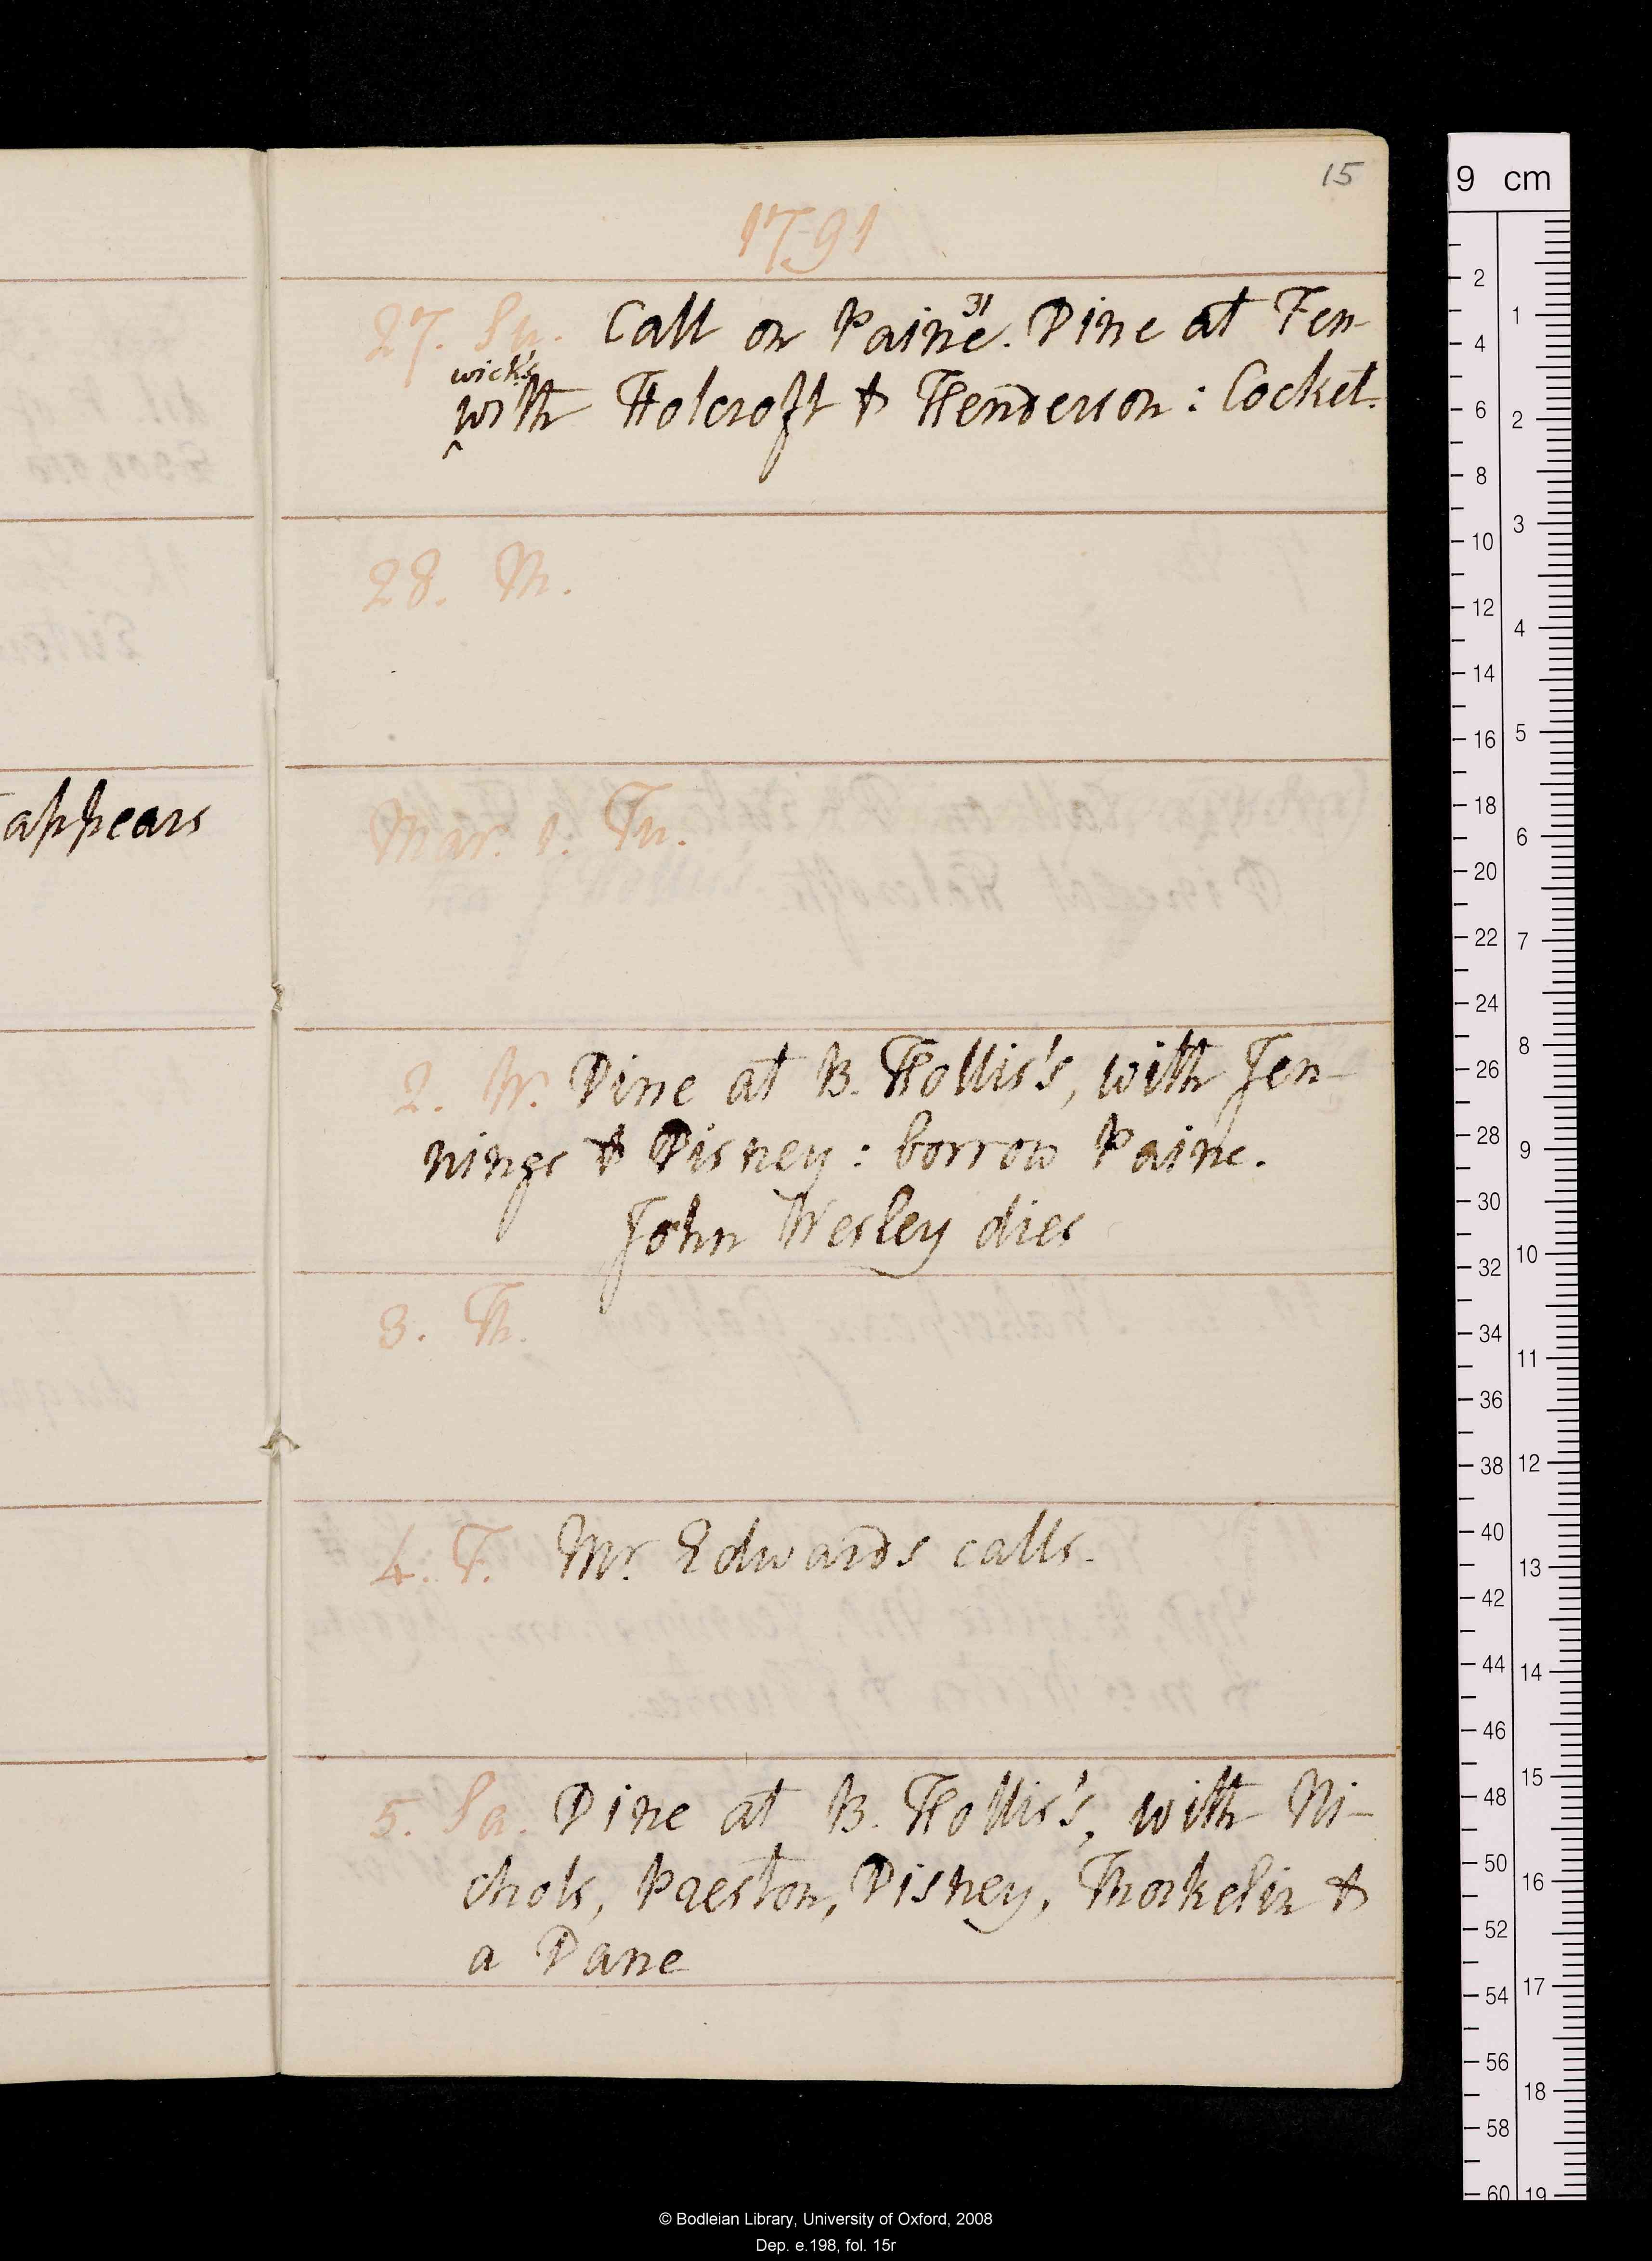 15
1791
27. Su. Call on Paine. Dine at Fen-
wick's
with Holcroft & Henderson: Cocket.
28. M.
appears
Mar. 1. Tu.
2. W. Dine at B. Hollis's, with Jen-
nings & Disney: borrow Paine.
John Wesley dies
3. Th.
4. F. Mr. Edwards calls.
5. Sa. Dine at B. Hollis's, with Ni-
chols, Preston, Disney, Thorkelin &
a Dane
9 cm
2
4
6
8
10
12
14
16
18
20
22
24
26
28
30
32
34
36
38
40
42
44
46
48
50
52
54
56
58
60
1
2
3
4
5
6
7
8
9
10
11
12
13
14
15
16
17
18
19
© Bodleian Library, University of Oxford, 2008
Dep. e.198, fol. 15r